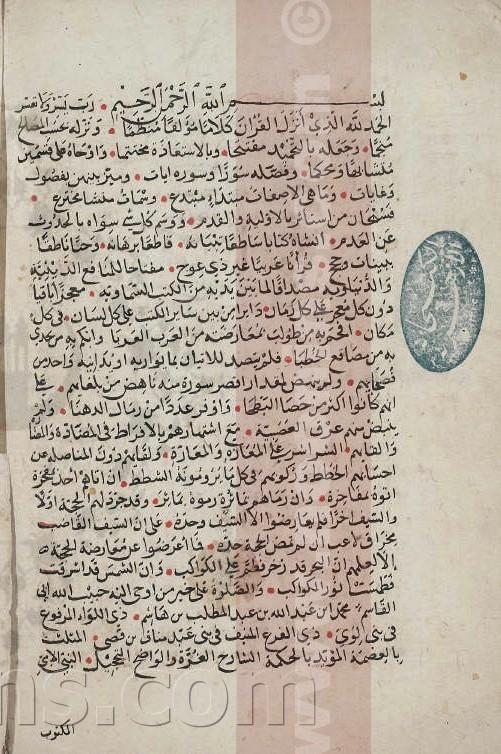 بسم الله الرحمن الرحيم رب يسر ولا تعسر
الحمد لله الذي أنزل القرآن كلاما مؤلفا منظما ونزله بحسب المصالح
منجما وجعله بالتحميد مفتتحا وبالاستعاذة مختتما وأوحاه على قسمين
متشابها ومحكما وفصله سورا وسوره آيات وميز بينهن بفصول
وغايات وما هي إلا صفات مبتداء مبتدع وسمات منشا مخترع
فسبحان من استأثر بالأولية والقدم ووسم كل شيء سواه بالحدوث
عن العدم أنشأه كتابا ساطعا تبيانه قاطعا برهانه وحيا ناطقا
ببينات وحجج قرآنا عربيا غير ذي عوج مفتاحا للمنافع الدينية
والدنيوية مصداقا لما بين يديه من الكتب السماوية معجزا باقيا
دون كل معجز على كل زمان دائرا من بين سائر الكتب على كل لسان في كل
مكان أفحم به من طولب بمعارضته من العرب العربا وأبكم به من تحدي
به من مصاقع الخطبا فلم يتصد للاتيان بما يوازيه أو يدانيه واحد من
فصحائهم ولم ينهض لمقدار أقصر سورة منه ناهض من بلغائهم على
انهم كانوا أكثر من حصا البطحا وأوفر عددا من رمال الدهنا ولم
ينبض منهم عرق العصبية مع اشتهارهم بالافراط في المضادة والمضارة
والقائهم الشراشر على المعازة والمعارة ولقائهم دون المناضلة عن
أحسابهم الخطط وركوبهم في كل ما يرومونه الشطط ان أتاهم أحد بمفخرة
أتوه بمفاخر وان رماهم بمأثرة رموه بمآثر وقد جرد لهم الحجة أولا
والسيف آخرا فلم يعارضوا الا السيف وحده على ان السيف القاضب
مخراق لاعب ان لم تمض الحجة حده فما أعرضوا عن معارضة الحجة
إلا لعلمهم ان البحر قد زخر فطم على الكواكب وان الشمس قد اشرقت
فطمست نور الكواكب والصلوة على خير من أوحي إليه حبيب الله أبي
القاسم محمد بن عبد الله بن عبد المطلب بن هاشم ذي اللواء المرفوع
في بني لؤي ذي الفرع المنيف في بني عبد مناف بن قصي المثبت
بالعصمة المؤيد بالحكمة الشادخ الغرة والواضح التحجيل النبي الامي
المكتوب